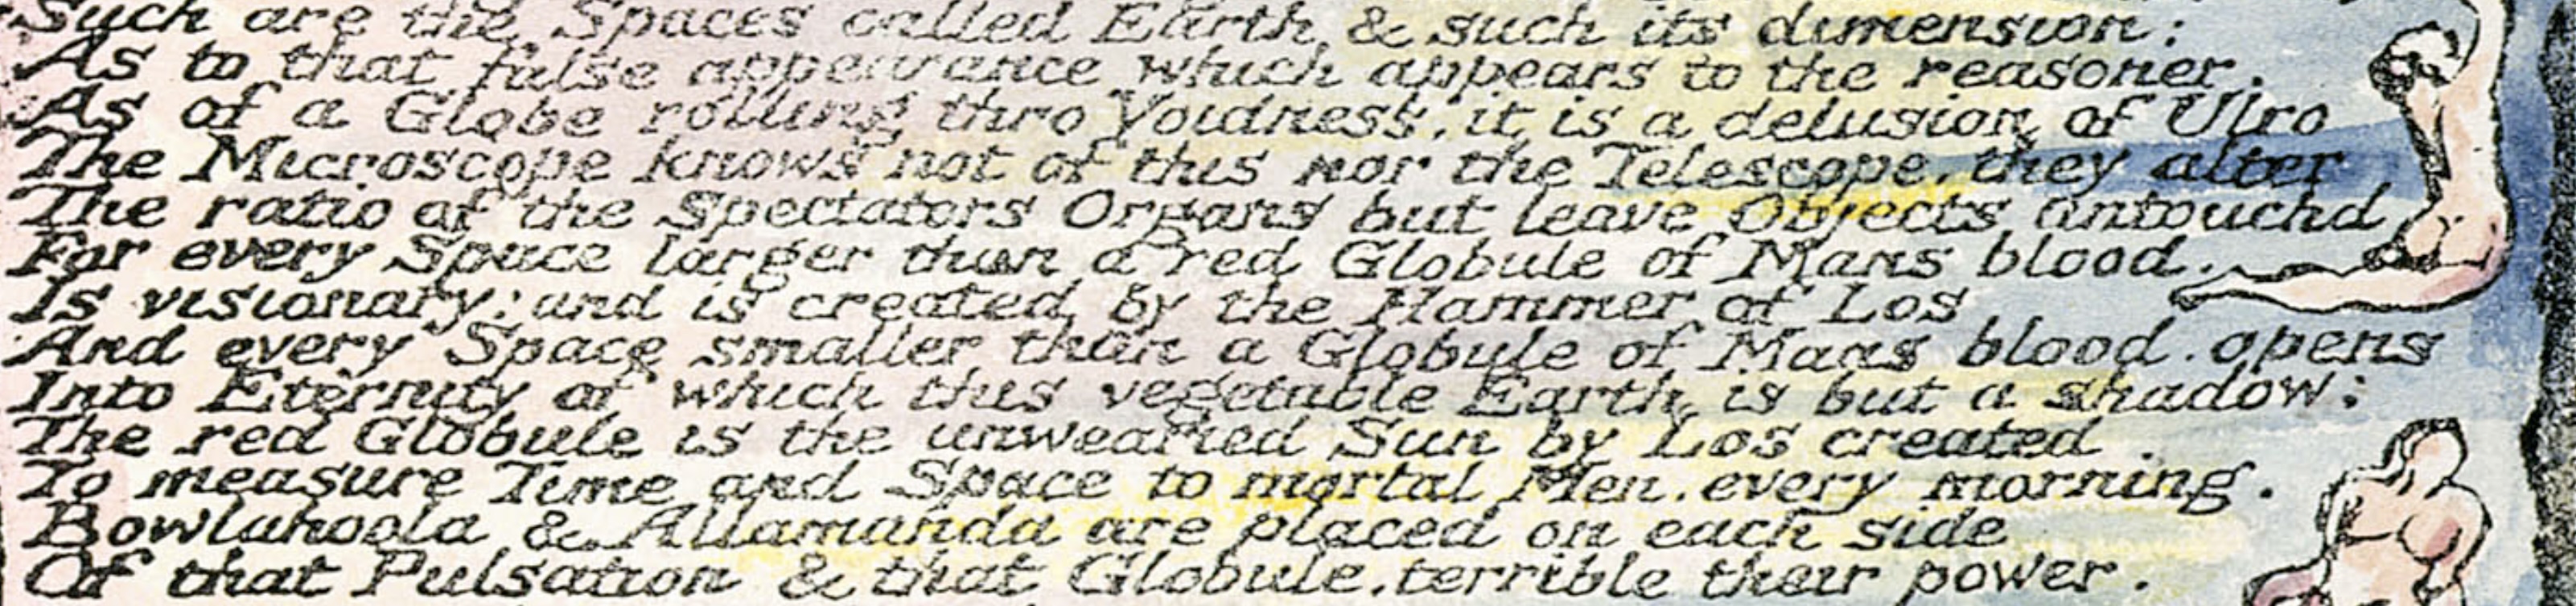 Such are the Spaces called Earth & such its dimension:
As to that false appearance which appears to the reasoner,
As of a Globe rolling thro Voidness, it is a delusion of Ulro
The Microscope knows not of this nor the Telescope. they alter
The ratio of the Spectators Organs but leave Objects untouchd
For every Space larger than a red Globule of Mans blood.
Is visionary: and is created by the Hammer of Los
And every Space smaller than a Globule of Mans blood. opens
Into Eternity of which this vegetable Earth is but a shadow:
The red Globule is the unwearied Sun by Los created
To measure Time and Space to mortal Men. every morning.
Bowlahoola & Allamanda are placed on each side
Of that Pulsation & that Globule. terrible their power.